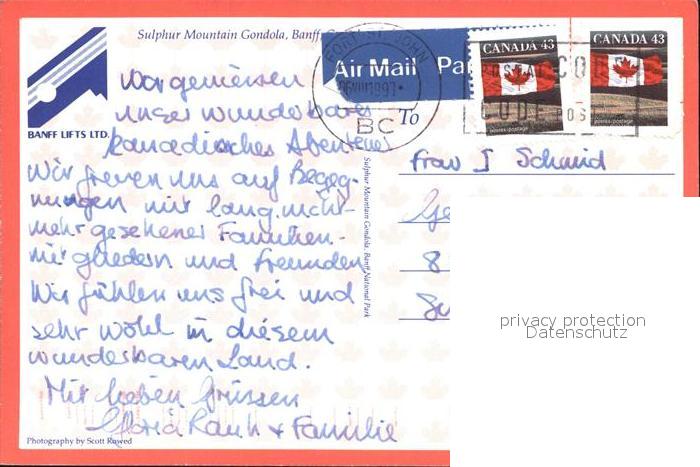 Sulphur Mountain Gondola, Banff
BANFF LIFTS LTD.
Air Mail Pa
FORT ST JOHN
1997
BC
CANADA 43
CANADA 43
postes/postage
postes/postage
POSTAL CODE
CODE POSTAL
To
Wir geniessen
unser wunderbares
kanadisches Abenteuer
Wir freuen uns auf Begeg-
nungen mit lang nicht-
mehr gesehener Familien-
mitgliedern und Freunden
Wir fühlen uns frei und
sehr wohl in diesem
wunderbaren Land.
Mit lieben Grüssen
Gloria Rauh + Familie
Frau J Schmid
Ge
8
Sulphur Mountain Gondola, Banff National Park
privacy protection
Datenschutz
Photography by Scott Rowed